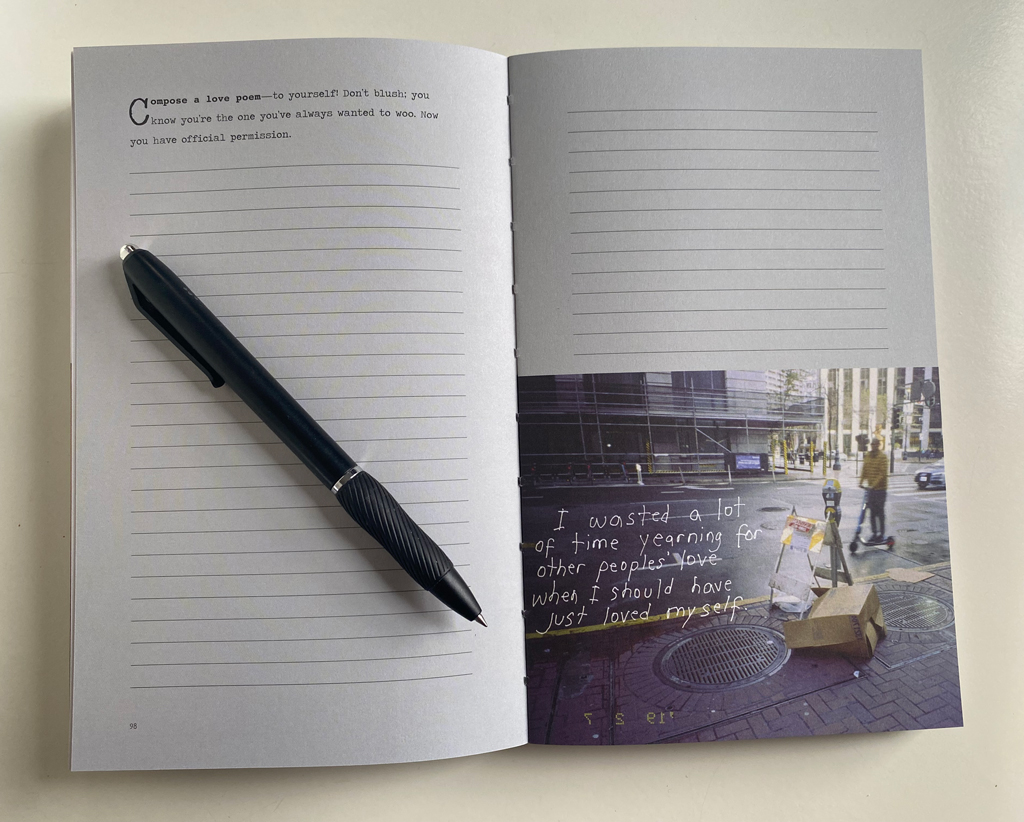 Compose a love poem—to yourself! Don't blush; you
know you're the one you've always wanted to woo. Now
you have official permission.
98
I wasted a lot
of time yearning for
other peoples' love
when I should have
just loved myself.
'19 2 7